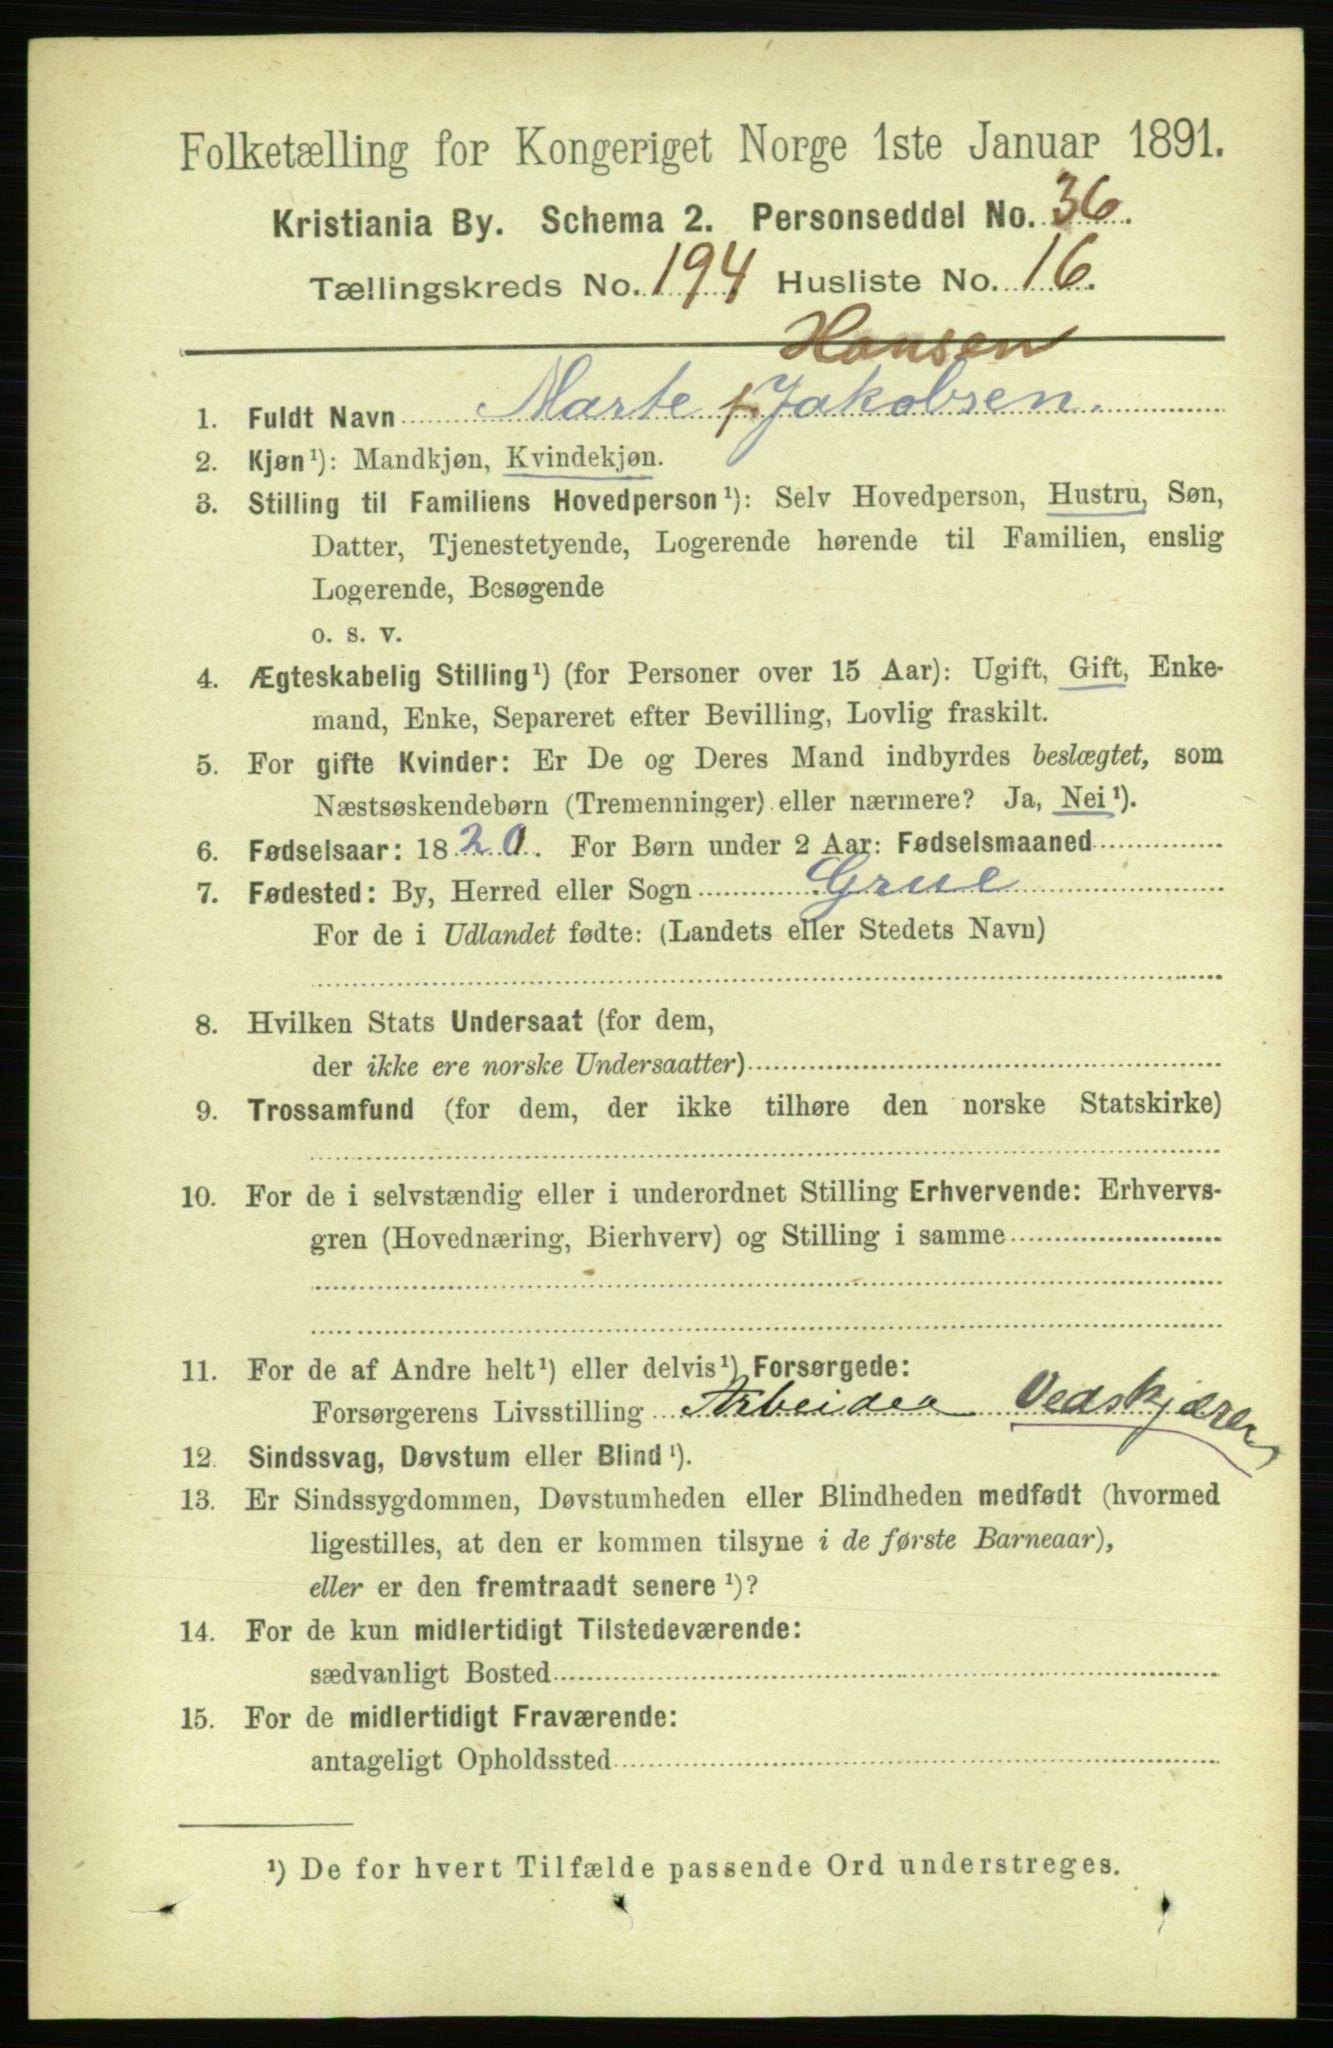 Folketælling for Kongeriget Norge 1ste Januar 1891.
Kristiania By. Schema 2. Personseddel No. 36.
Tællingskreds No. 194 Husliste No. 16.
Hansen
1. Fuldt Navn Marte f. Jakobsen.
2. Kjøn¹): Mandkjøn, Kvindekjøn.
3. Stilling til Familiens Hovedperson¹): Selv Hovedperson, Hustru, Søn,
Datter, Tjenestetyende, Logerende hørende til Familien, enslig
Logerende, Besøgende
o. s. v.
4. Ægteskabelig Stilling¹) (for Personer over 15 Aar): Ugift, Gift, Enke-
mand, Enke, Separeret efter Bevilling, Lovlig fraskilt.
5. For gifte Kvinder: Er De og Deres Mand indbyrdes beslægtet, som
Næstsøskendebørn (Tremenninger) eller nærmere? Ja, Nei¹).
6. Fødselsaar: 1820. For Børn under 2 Aar: Fødselsmaaned
7. Fødested: By, Herred eller Sogn Grue
For de i Udlandet fødte: (Landets eller Stedets Navn)
8. Hvilken Stats Undersaat (for dem,
der ikke ere norske Undersaatter)
9. Trossamfund (for dem, der ikke tilhøre den norske Statskirke)
10. For de i selvstændig eller i underordnet Stilling Erhvervende: Erhvervs-
gren (Hovednæring, Bierhverv) og Stilling i samme
11. For de af Andre helt¹) eller delvis¹) Forsørgede:
Forsørgerens Livsstilling Arbeider Vedskjærer
12. Sindssvag, Døvstum eller Blind¹).
13. Er Sindssygdommen, Døvstumheden eller Blindheden medfødt (hvormed
ligestilles, at den er kommen tilsyne i de første Barneaar),
eller er den fremtraadt senere¹)?
14. For de kun midlertidigt Tilstedeværende:
sædvanligt Bosted
15. For de midlertidigt Fraværende:
antageligt Opholdssted
¹) De for hvert Tilfælde passende Ord understreges.